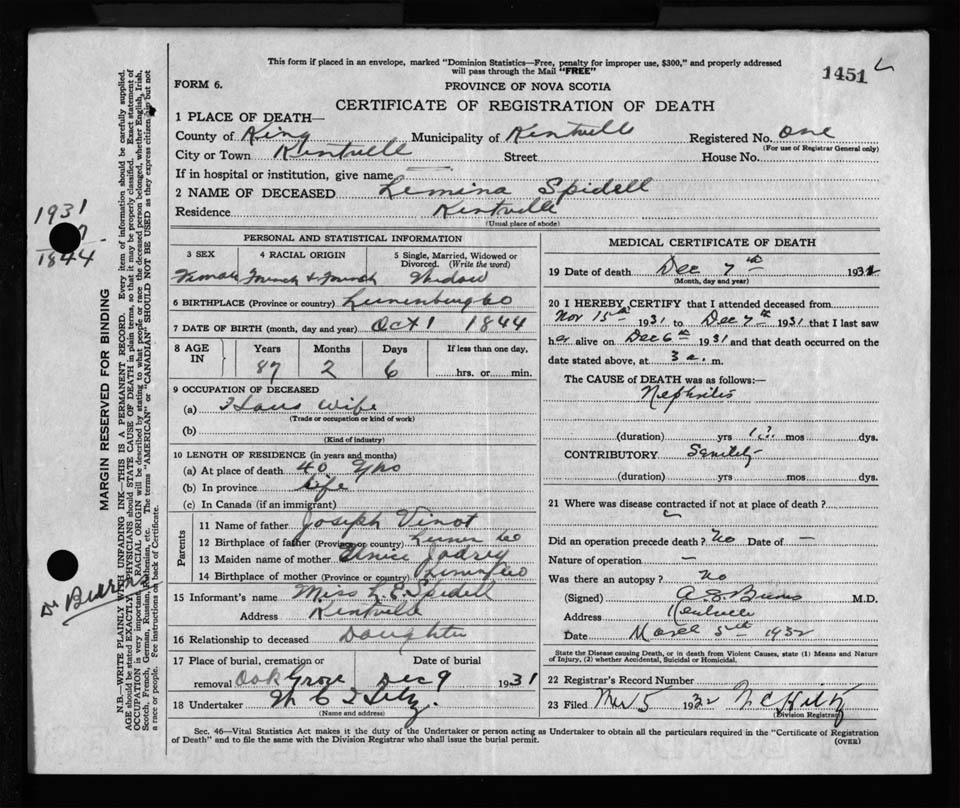 This form if placed in an envelope, marked "Dominion Statistics—Free, penalty for improper use, $300," and properly addressed
will pass through the Mail "FREE"
1451
FORM 6.
PROVINCE OF NOVA SCOTIA
CERTIFICATE OF REGISTRATION OF DEATH
1 PLACE OF DEATH—
County of King Municipality of Kentville Registered No. one
(For use of Registrar General only)
City or Town Kentville Street House No.
If in hospital or institution, give name
2 NAME OF DECEASED Lemina Spidell
Residence Kentville
(Usual place of abode)
PERSONAL AND STATISTICAL INFORMATION
3 SEX 4 RACIAL ORIGIN 5 Single, Married, Widowed or Divorced. (Write the word)
Female French & French Widow
6 BIRTHPLACE (Province or country) Lunenburg Co
7 DATE OF BIRTH (month, day and year) Oct 1 1844
8 AGE IN Years Months Days If less than one day,
87 2 6 hrs. or min.
9 OCCUPATION OF DECEASED
(a) Hous wife
(Trade or occupation or kind of work)
(b)
(Kind of industry)
10 LENGTH OF RESIDENCE (in years and months)
(a) At place of death 40 yrs
(b) In province Life
(c) In Canada (if an immigrant)
Parents
11 Name of father Joseph Vinot
12 Birthplace of father (Province or country) Lunen Co
13 Maiden name of mother Jodrey
14 Birthplace of mother (Province or country)
15 Informant's name Miss L. E. Spidell
Address Kentville
16 Relationship to deceased Daughter
17 Place of burial, cremation or Date of burial
removal Oak Grove Dec 9 1931
18 Undertaker
(Name and address)
MEDICAL CERTIFICATE OF DEATH
19 Date of death Dec 7th 1931
(Month, day and year)
20 I HEREBY CERTIFY that I attended deceased from
Nov 15th 1931 to Dec 7th 1931 that I last saw
her alive on Dec 6th 1931 and that death occurred on the
date stated above, at 3 a. m.
The CAUSE of DEATH was as follows:—
Nephritis
(duration) yrs mos dys.
CONTRIBUTORY Senility
(duration) yrs mos dys.
21 Where was disease contracted if not at place of death?
Did an operation precede death? No Date of —
Nature of operation —
Was there an autopsy? No
(Signed) A S Burns M.D.
Address Kentville
Date March 5th 1932
State the Disease causing Death, or in death from Violent Causes, state (1) Means and
Nature of Injury, (2) whether Accidental, Suicidal or Homicidal.
22 Registrar's Record Number
23 Filed Mar 5 1932
(Division Registrar)
Sec. 46—Vital Statistics Act makes it the duty of the Undertaker or person acting as Undertaker to obtain all the particulars required in the "Certificate of Registration
of Death" and to file the same with the Division Registrar who shall issue the burial permit.
(OVER)
1931
1844
Dr Burns
MARGIN RESERVED FOR BINDING
N.B.—WRITE PLAINLY WITH UNFADING INK—THIS IS A PERMANENT RECORD. Every item of information should be carefully supplied.
AGE should be stated EXACTLY. PHYSICIANS should STATE CAUSE OF DEATH in plain terms, so that it may be properly classified. Exact statement of
OCCUPATION is very important. RACIAL ORIGIN will be described by stating to what people or race the deceased person belonged, whether English, Irish,
Scotch, French, German, Russian, Ruthenian, etc. The terms "AMERICAN" or "CANADIAN" SHOULD NOT BE USED as they express citizenship but not
a race or people. See instructions on back of Certificate.